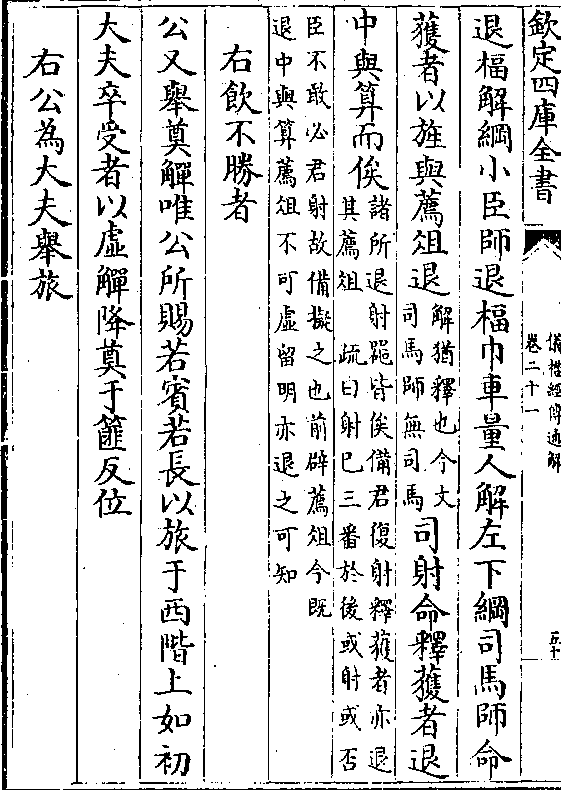 欽定四庫全書
儀禮經傳通解
卷二十一
五十
退楅解綱小臣師退楅巾車量人解左下綱司馬師命
獲者以旌與薦俎退
解猶釋也今文
司馬師無司馬
司射命釋獲者退
中與算而俟
諸所退射器皆俟備君復射釋獲者亦退
其薦俎 疏曰射已三番於後或射或否
臣不敢必君射故備擬之也前辟薦俎今既
退中與算薦俎不可虛留明亦退之可知
右飲不勝者
公又舉奠觶唯公所賜若賓若長以旅于西階上如初
大夫卒受者以虛觶降奠于篚反位
右公為大夫舉旅